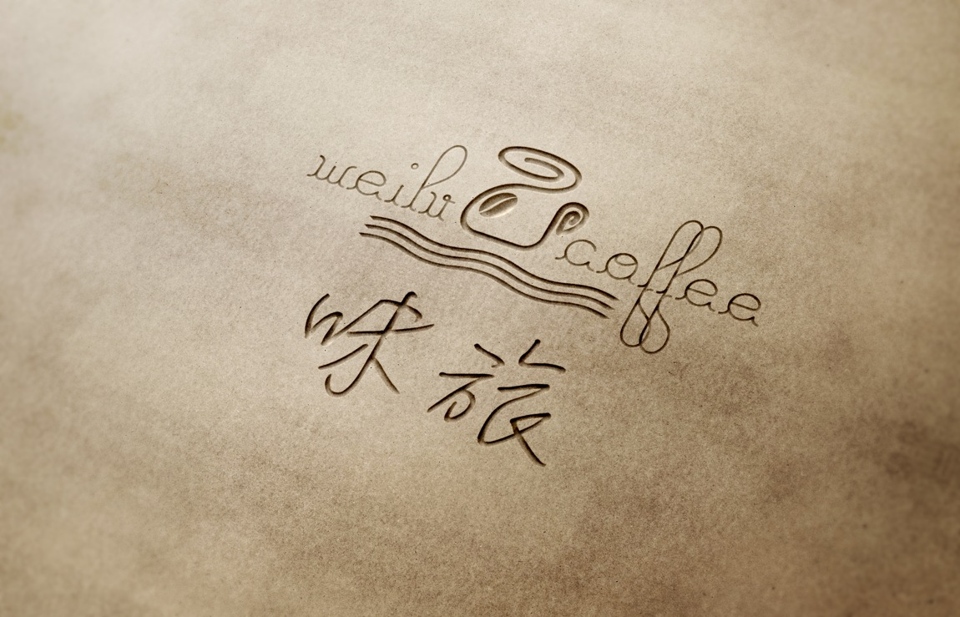 weilü coffee
味旅